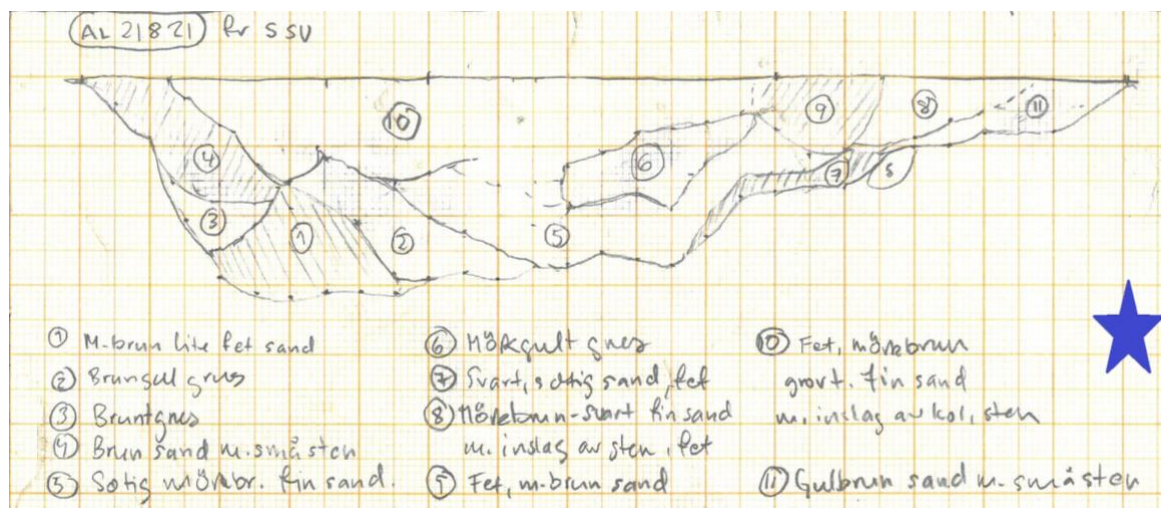 AL 21821 fr SSV
10
9
8
11
4
6
7
5
3
1
2
5
① M-brun lite fet sand
② Brungul grus
③ Brunt grus
④ Brun sand m. småsten
⑤ Sotig mörkbr. fin sand.
⑥ Mörkgult grus
⑦ Svart, sotig sand, fet
⑧ Mörkbrun-svart fin sand
m. inslag av sten, fet
⑨ Fet, m-brun sand
⑩ Fet, mörkbrun
grovt. fin sand
m. inslag av kol, sten
⑪ Gulbrun sand m. småsten